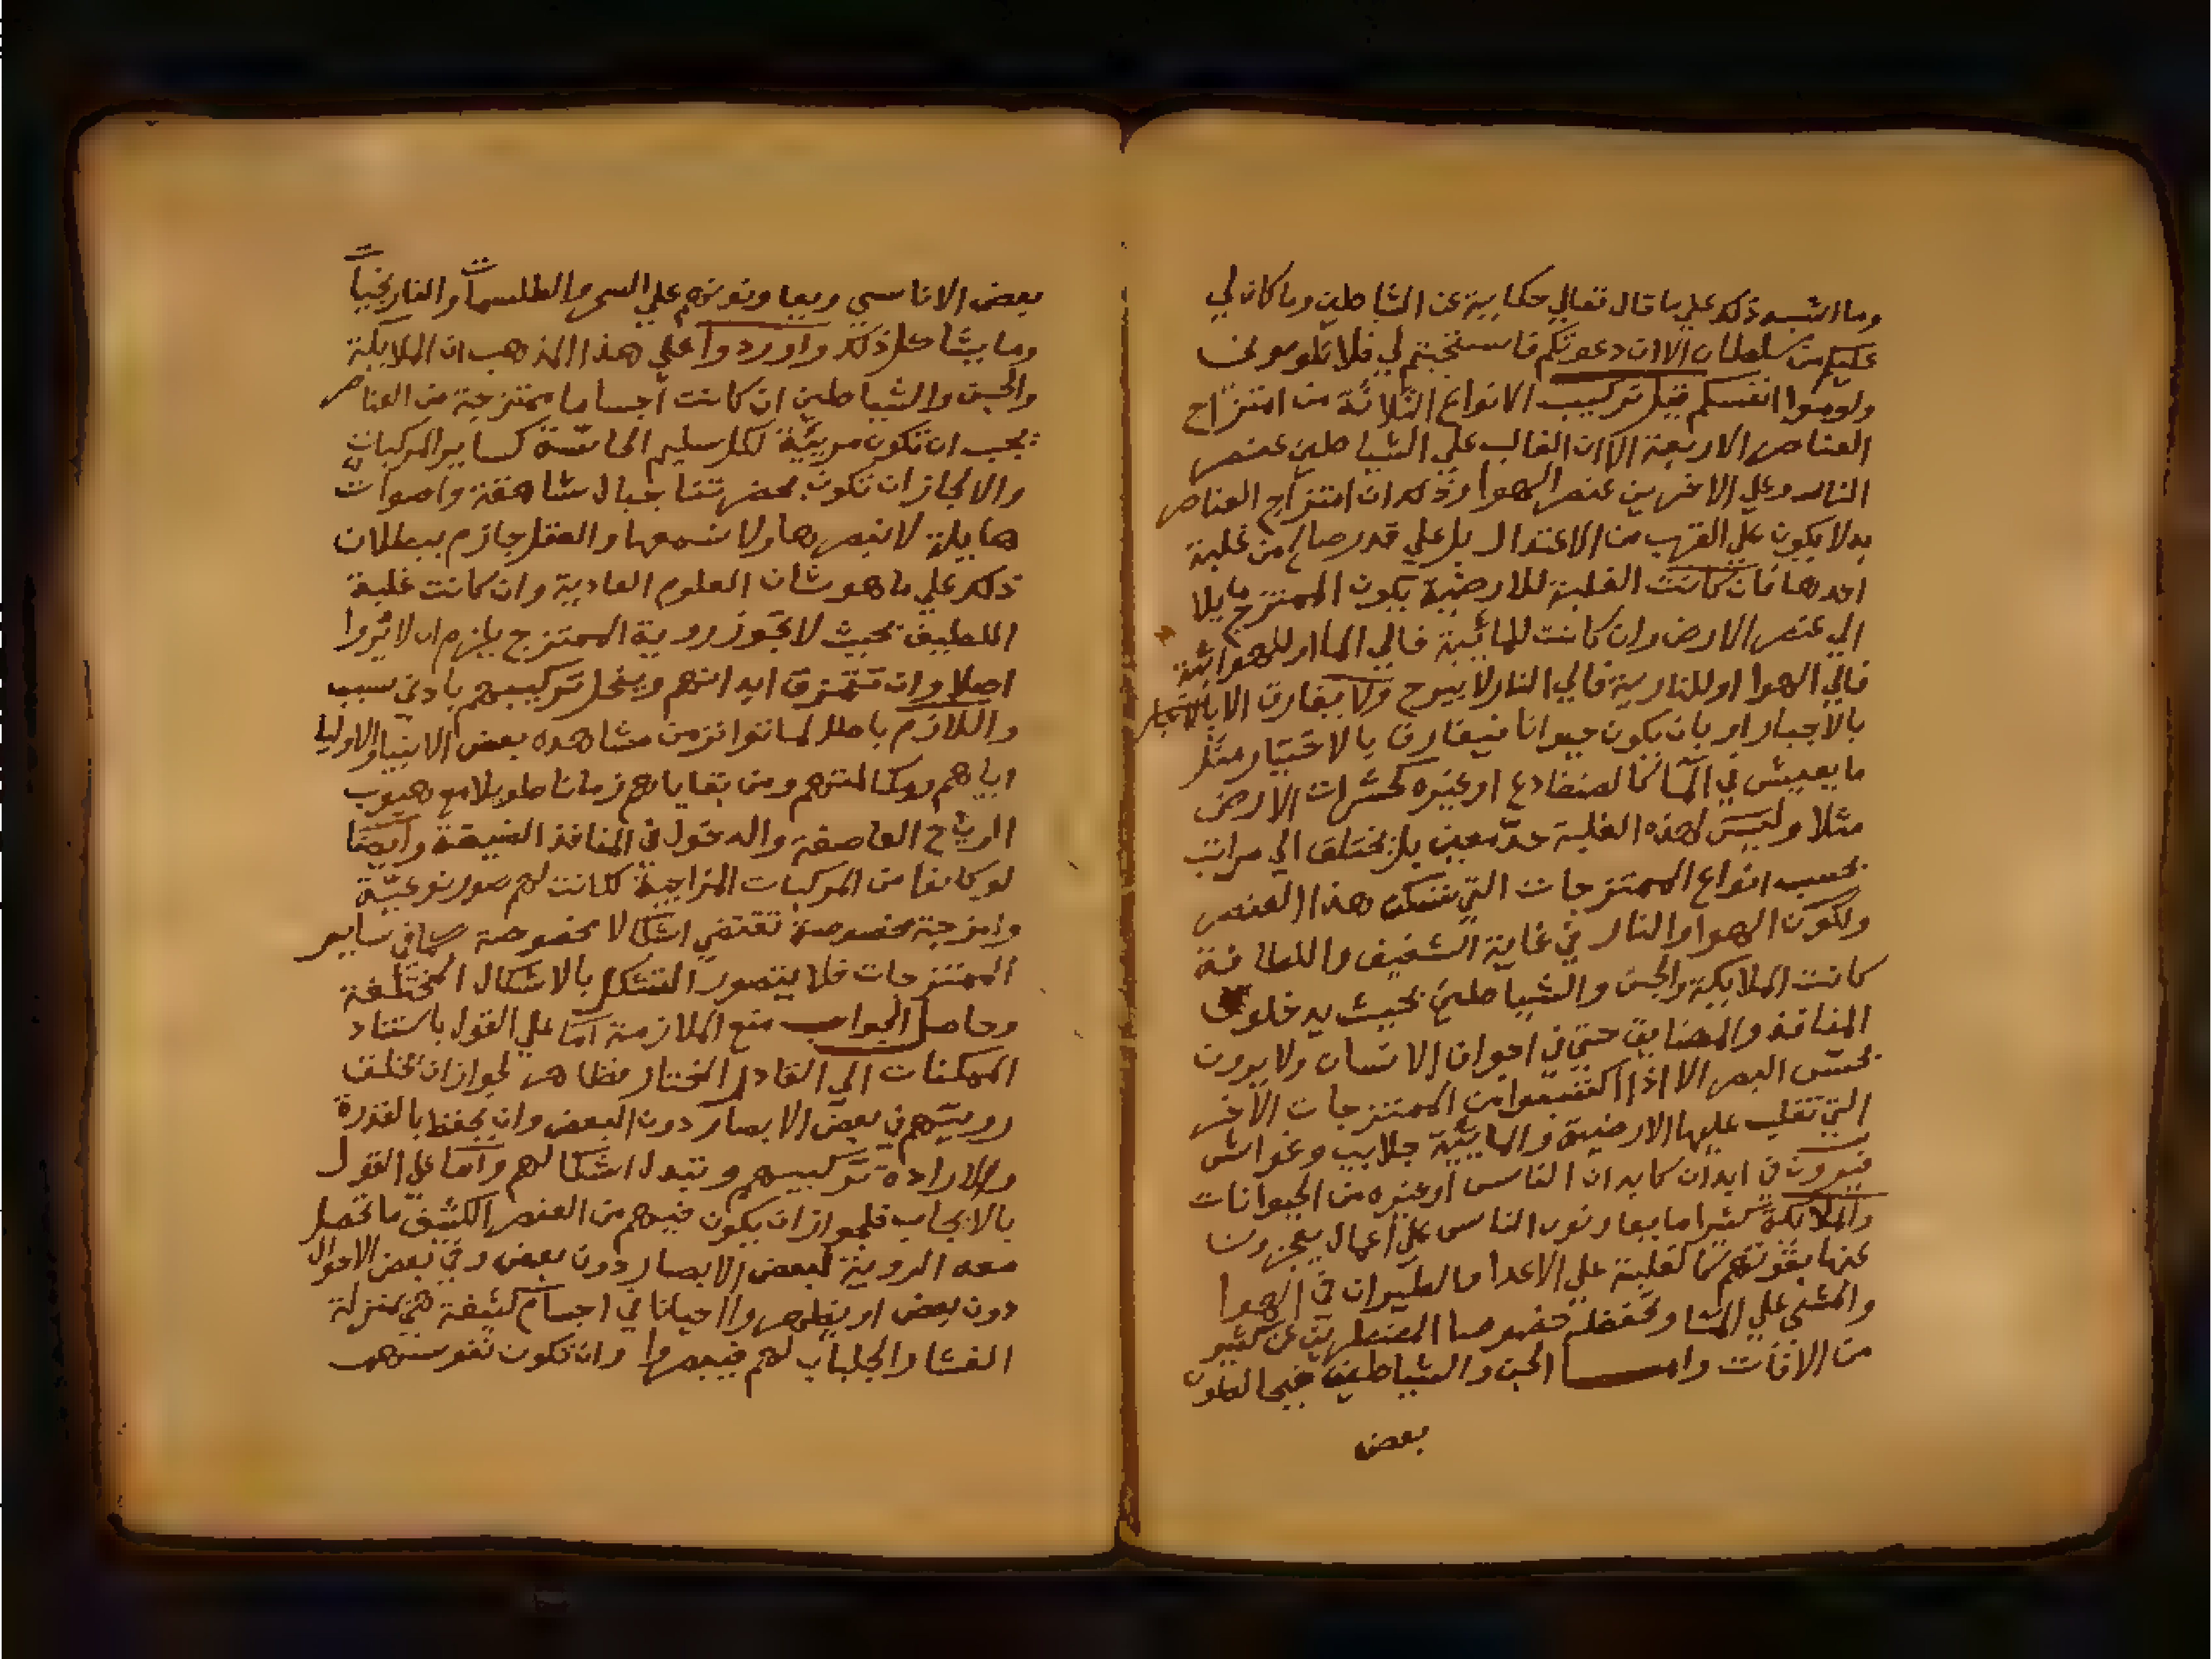 وما اشبه ذلك علي ما قال تعالي حكاية عن الشياطين وما كان لي
عليكم من سلطان الا ان دعوتكم فاستجبتم لي فلا تلوموني
ولوموا انفسكم قيل تركيب الانواع الثلاثة من امتزاج
العناصر الاربعة الا ان الغالب علي الشياطين عنصر
النار وعلي الاخرين عنصر الهوا وذلك ان امتزاج العناصر
قد لا يكون علي القرب من الاعتدال بل علي قدر صالح من غلبة
احدها فان كانت الغلبة للارضية يكون الممتزج مايلا
الي عنصر الارض وان كانت للمائية فالي الما او للهوائية
فالي الهوا او للنارية فالي النار لا يبرح ولا يفارق الا بالاجبار
بالاجبار او بان يكون حيوانا فيفارق بالاختيار مثل
ما يعيش في الما كالضفادع او غيره كحشرات الارض
مثلا وليس لهذه الغلبة حد معين بل تختلف الي مراتب
بحسب انواع الممتزجات التي تسكن هذا العنصر
ولكون الهوا والنار في غاية الشفيف واللطافة
كانت الملايكة والجن والشياطين بحيث يدخلون
المنافذ والمضايق حتي في اجواف الانسان ولا يرون
بحس البصر الا اذا اكتسبوا من الممتزجات الاخر
التي تغلب عليها الارضية والمائية جلابيب وغواشي
فيرون في ابدان كابدان الناس او غيره من الحيوانات
والملايكة كثيرا ما يعاونون الناس علي اعمال يعجزون
عنها بقوتهم كالغلبة علي الاعدا والطيران في الهوا
والمشي علي الما وتحفظهم خصوصا المضطرين عن كثير
من الافات واما الجن والشياطين فيخالطون
بعض
بعض الاناسي ويعاونونهم علي السحر والطلسمات والنارنجيات
وما يشاكل ذلك واوردوا علي هذا المذهب ان الملايكة
والجن والشياطين ان كانت أجساما ممتزجة من العناصر
يجب ان تكون مرئية لكل سليم الحاسة كساير المركبات
والا لجاز ان تكون بحضرتنا جبال شاهقة واصوات
هايلة لا نبصرها ولا نسمعها والعقل جازم ببطلان
ذلك علي ما هو شان العلوم العادية وان كانت غلبة
اللطيف بحيث لا تجوز روية الممتزج يلزم ان لا يروا
اصلا وان تتمزق ابدانهم وينحل تركيبهم بادني سبب
واللازم باطل لما تواتر من مشاهده بعض الانبيا والاوليا
اياهم ومكالمتهم ومن بقاياهم زمانا طويلا مع هبوب
الرياح العاصفة والدخول في المنافذ الضيقة وأيضا
لو كانوا من المركبات المزاجية لكانت لهم صور نوعية
وامزجة مخصوصة تقتضي اشكالا مخصوصة كما في ساير
الممتزجات فلا يتصور التشكل بالاشكال المختلفة
وحاصل الجواب منع الملازمة اما علي القول باستناد
الممكنات الي القادر المختار فظاهر لجواز ان تخلق
رويتهم في بعض الابصار دون البعض وان يحفظ بالقدرة
والارادة تركيبهم وتبدل اشكالهم وأما علي القول
بالايجاب فلجواز ان يكون فيهم من العنصر الكثيف ما تحصل
معه الروية لبعض الابصار دون بعض وفي بعض الاحوال
دون بعض او يظهروا احيانا في اجسام كثيفة هي بمنزلة
الغشا والجلباب لهم فيبصروا وان تكون نفوسهم